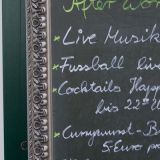 After Wor
* Live Musik
* Fussball live
* Cocktails Happy
bis 22
* Currywurst-B
5,- Euro p